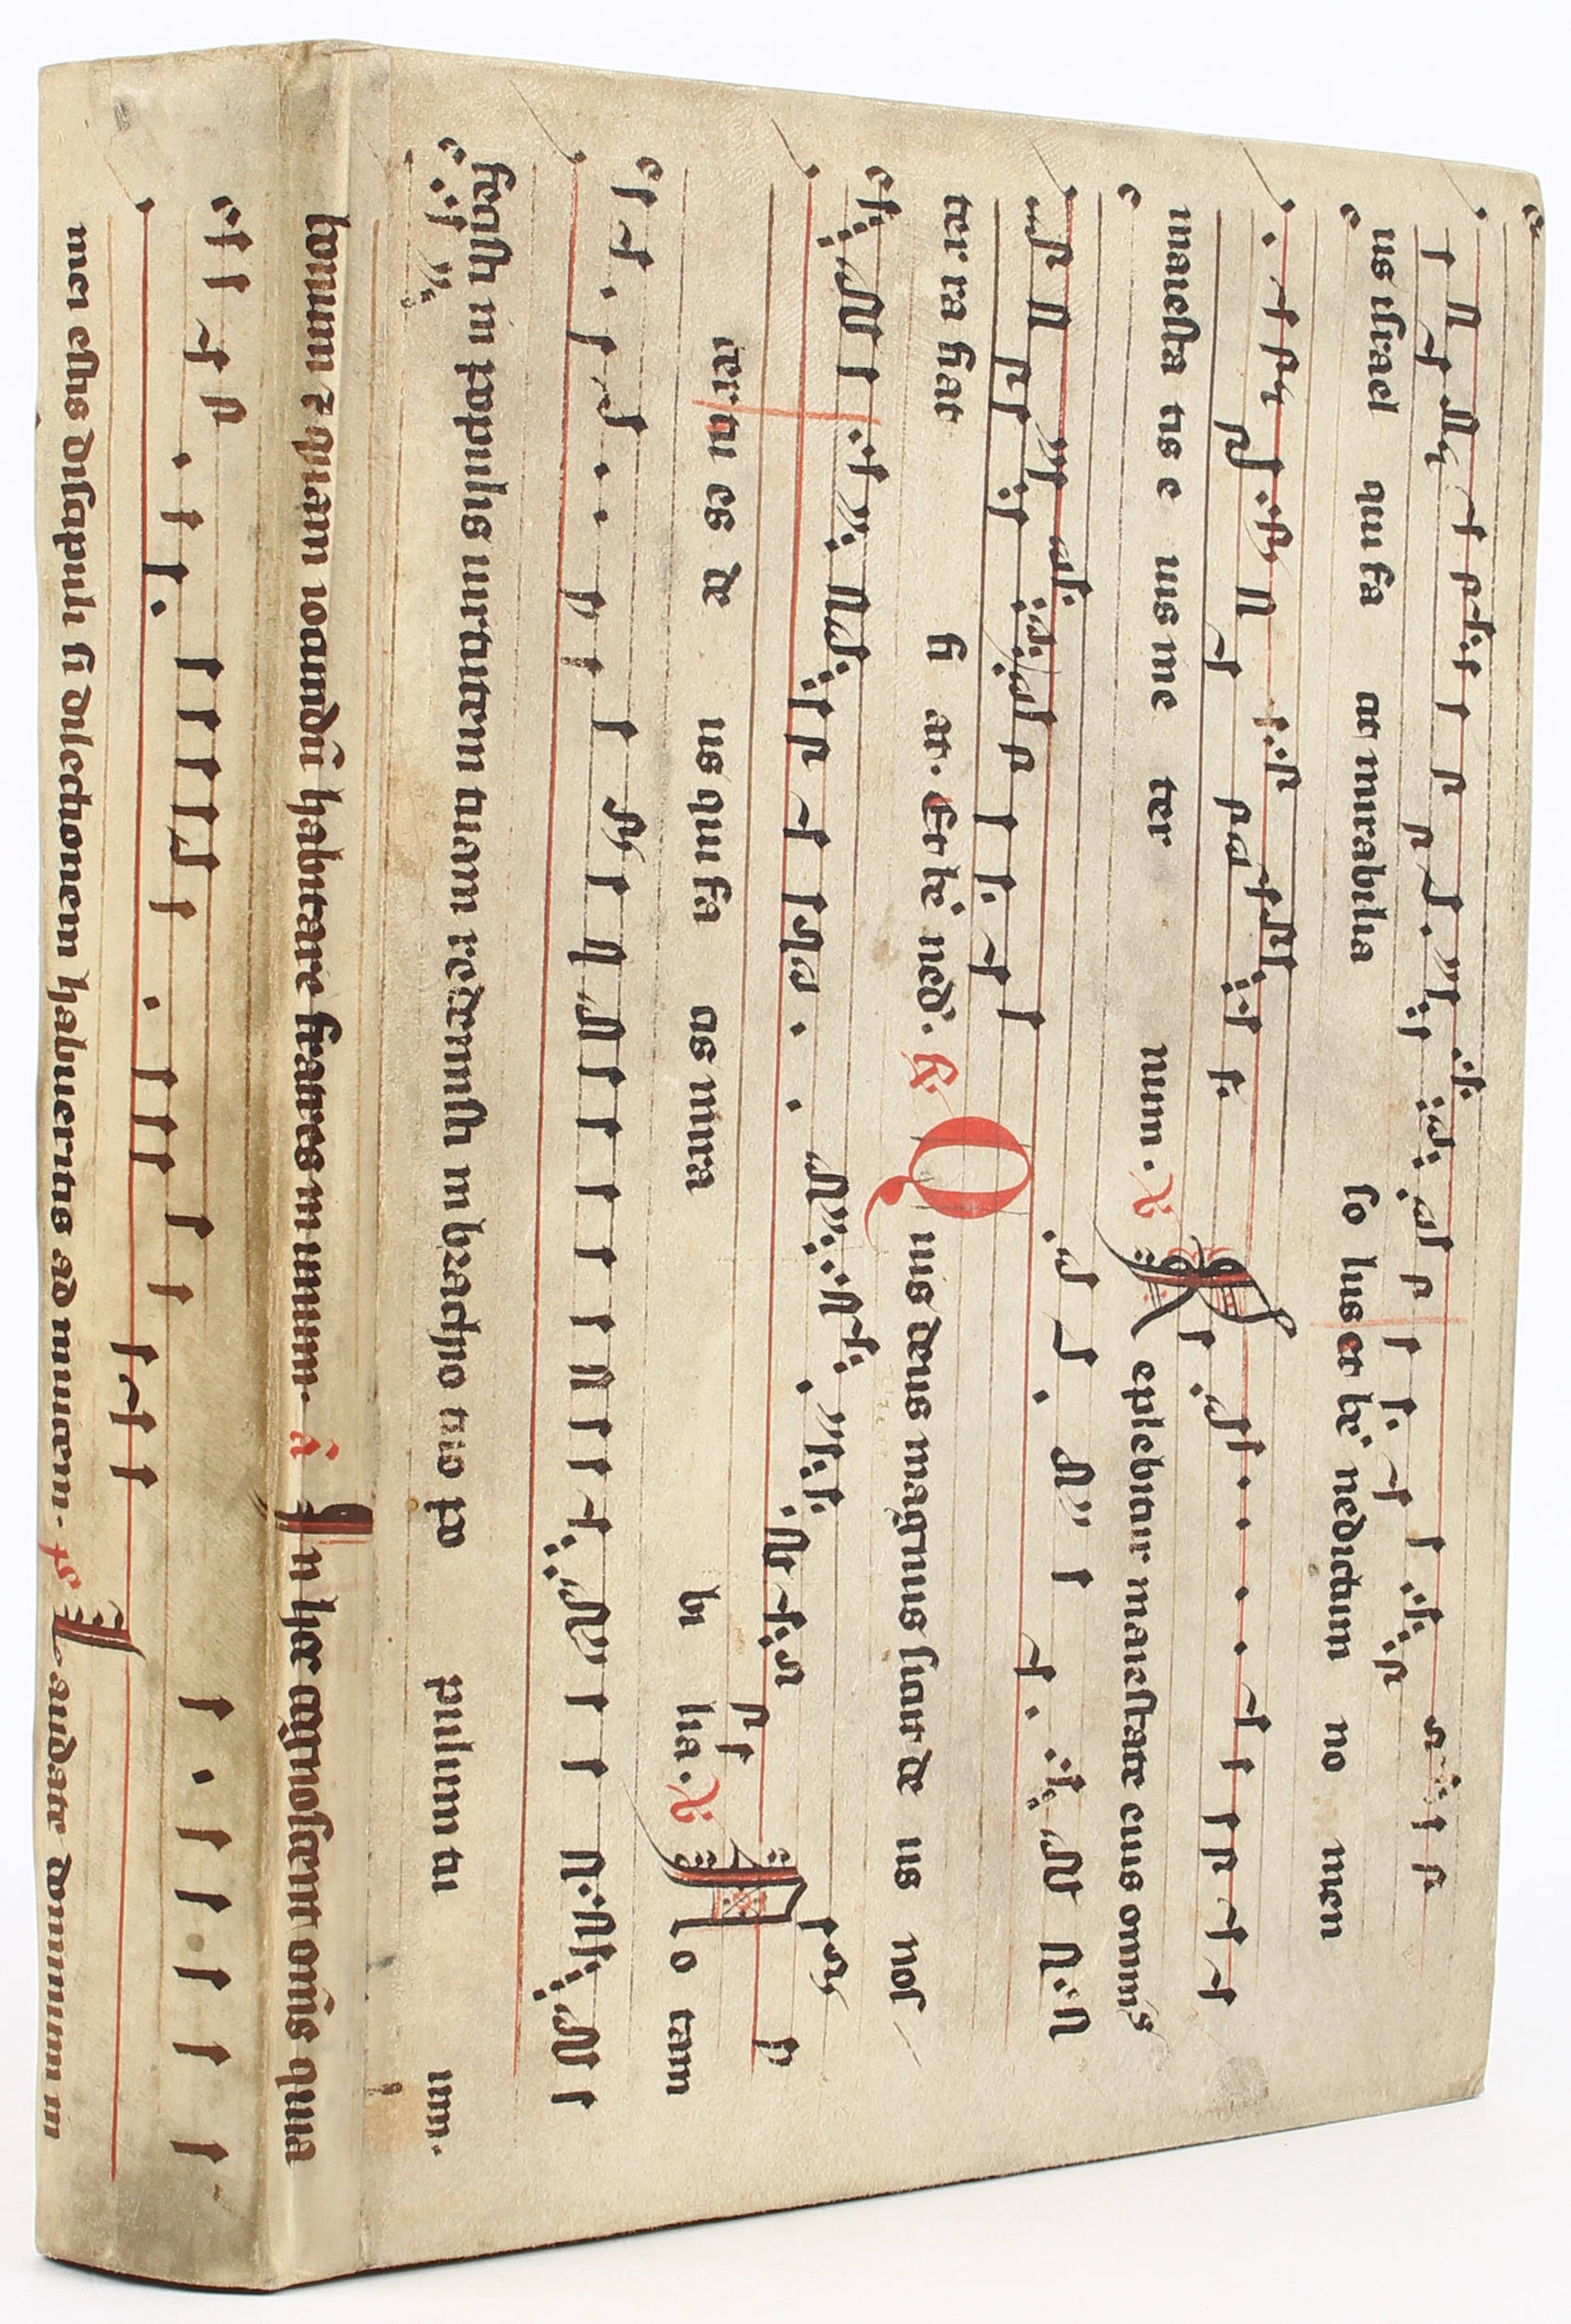 us israel qui fa at mirabilia so lus et be' nedictum no men
maiesta tis e ius me ter num. V Replebitur maiestate eius omnis
ter ra fiat fi at. Et be' ned'. R Quis deus magnus sicut de us nos
ter tu es de us qui fa as mira bi lia. V No tam
fecisti in populis uirtutem tuam redemisti in brachio tuo po pulum tu um.
bonum 7 quam iocundū habitare fratres in unum. a In hoc cognoscent om̄s quia
mei estis discipuli si dilectionem habueritis ad inuicem. ps Laudate dominum in